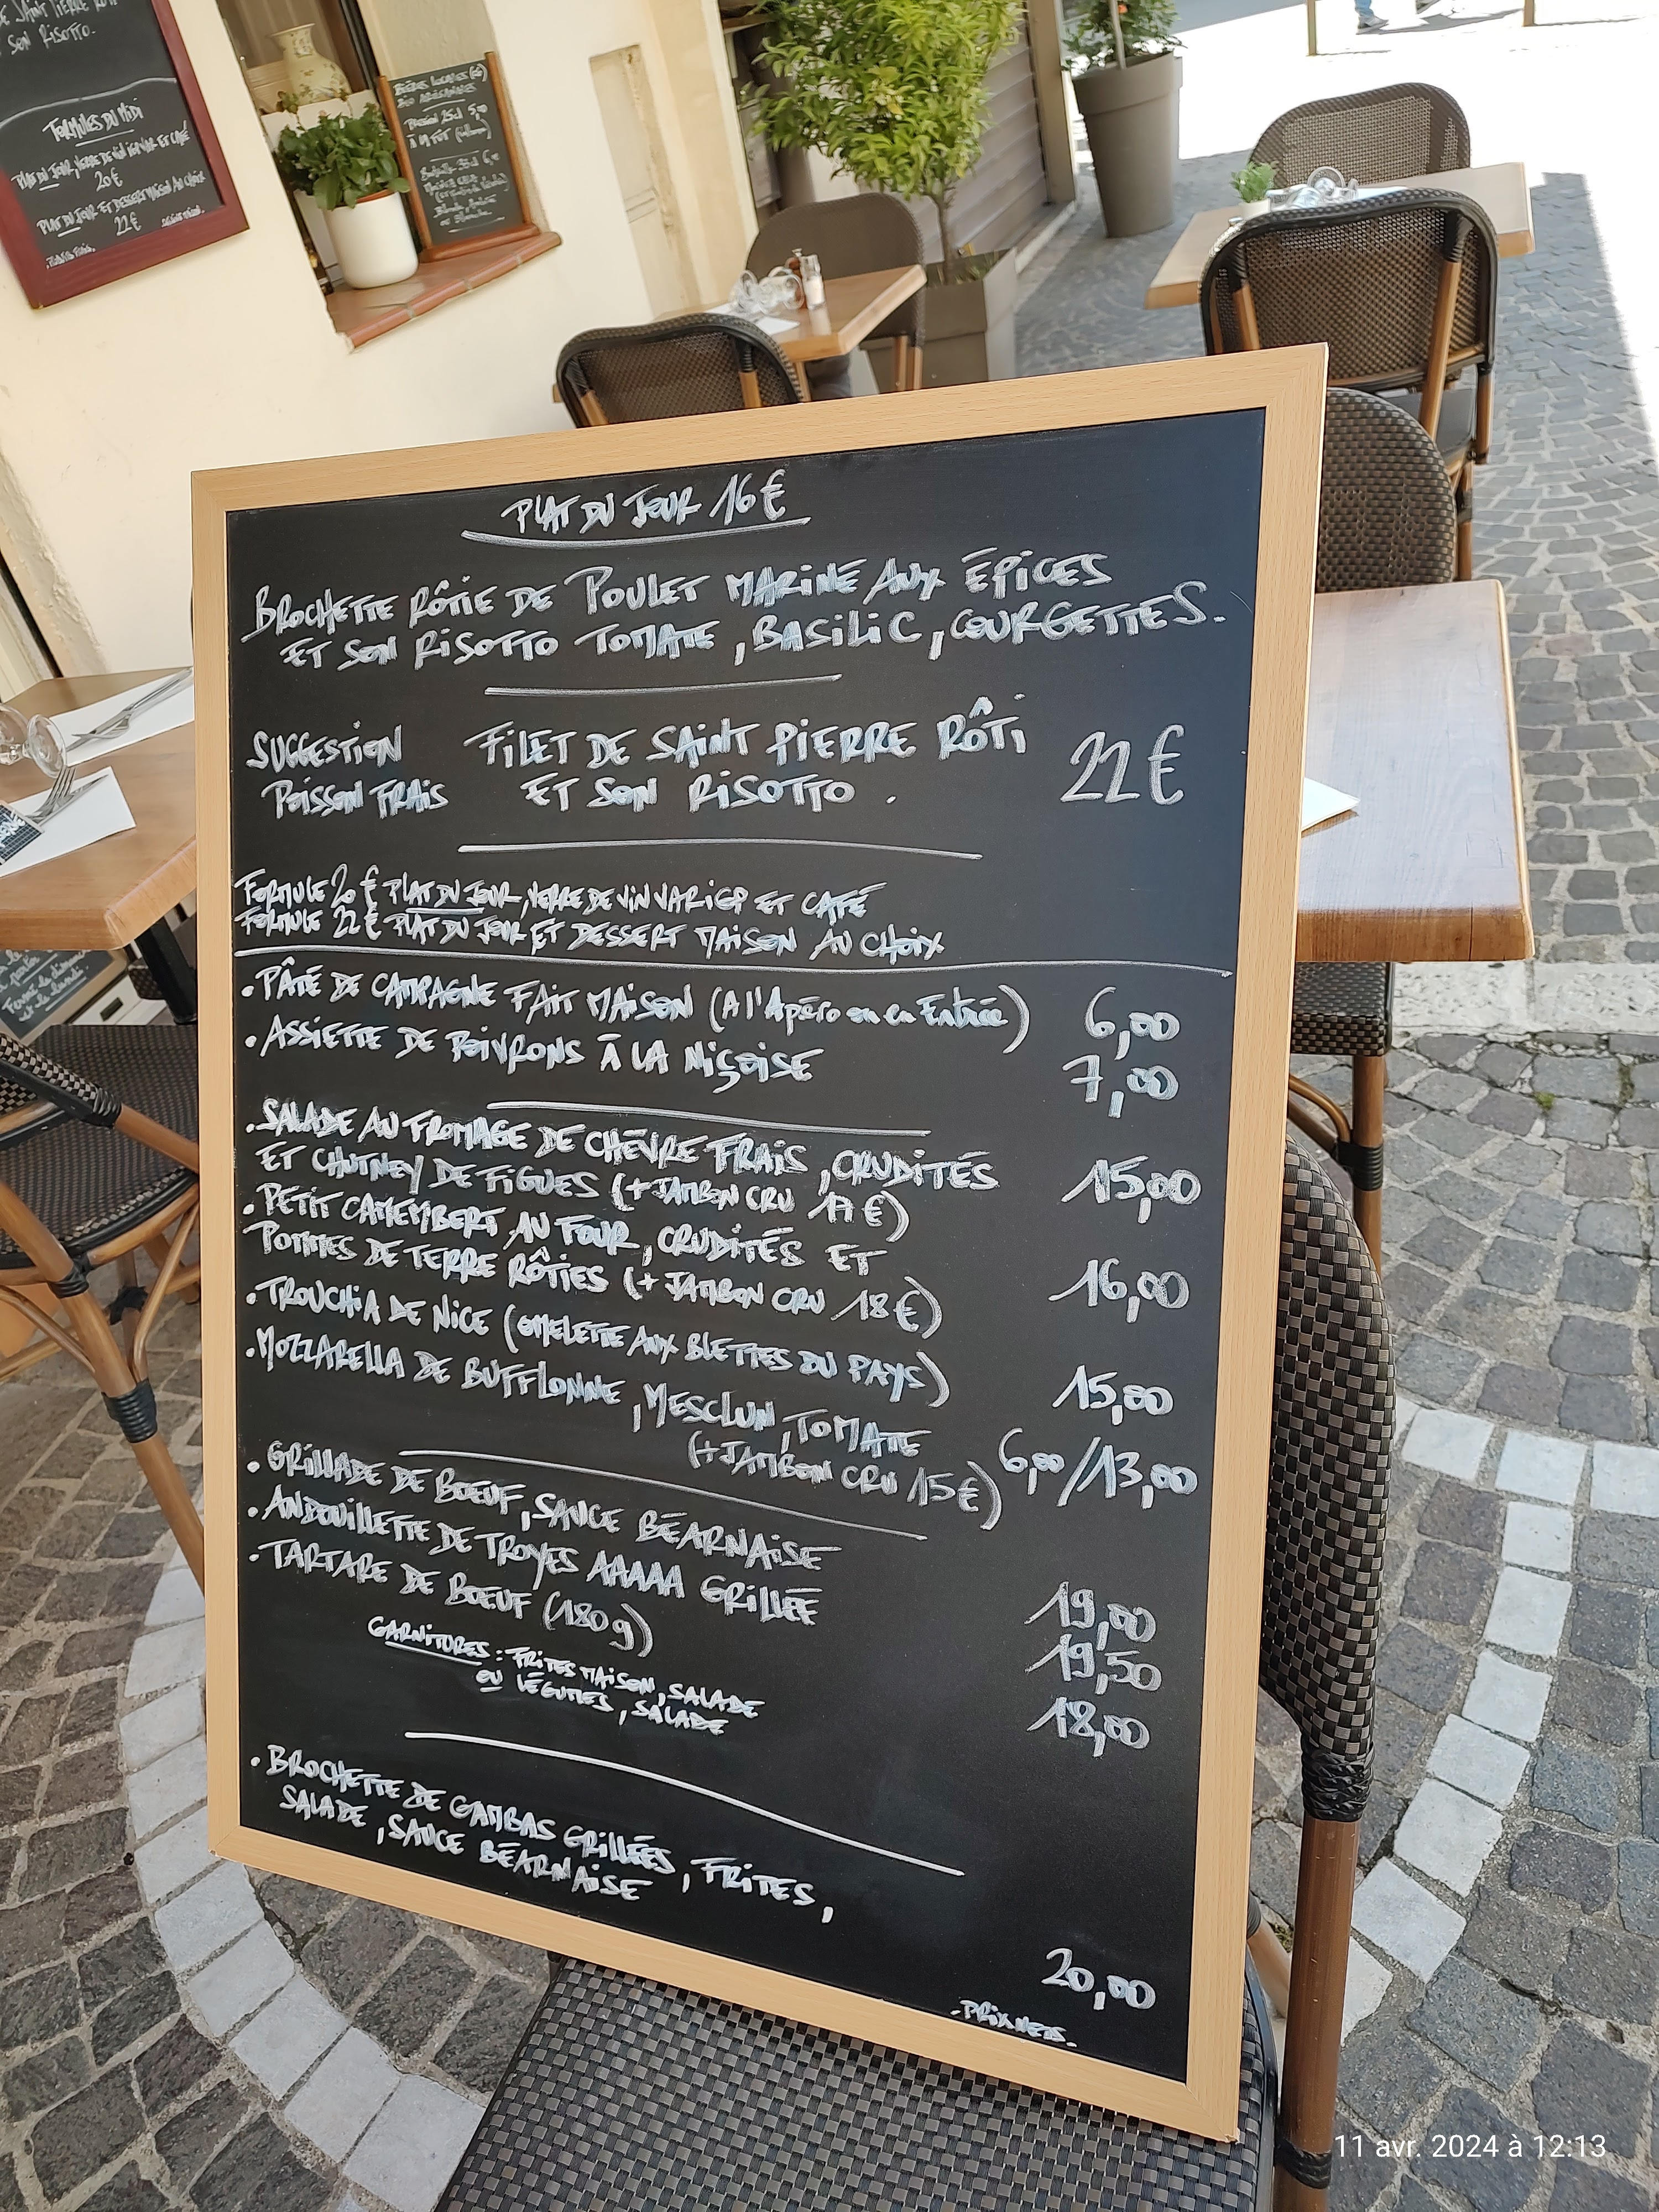 SON RISOTTO.
FORMULES DU MIDI
PLAT DU JOUR, VERRE DE VIN VAR ET CAFÉ
20€
PLAT DU JOUR ET DESSERT MAISON AU CHOIX
22€
BIÈRES LOCALES
BIO ARTISANALES
PRESSION 25cl 5,00
PLAT DU JOUR 16€
BROCHETTE RÔTIE DE POULET MARINÉ AUX ÉPICES
ET SON RISOTTO TOMATE, BASILIC, COURGETTES.
SUGGESTION FILET DE SAINT PIERRE RÔTI 22€
POISSON FRAIS ET SON RISOTTO.
FORMULE 20€ PLAT DU JOUR, VERRE DE VIN VAR IGP ET CAFÉ
FORMULE 22€ PLAT DU JOUR ET DESSERT MAISON AU CHOIX
• PÂTÉ DE CAMPAGNE FAIT MAISON (A l'Apéro ou en Entrée) 6,00
• ASSIETTE DE POIVRONS À LA NIÇOISE 7,00
• SALADE AU FROMAGE DE CHÈVRE FRAIS, CRUDITÉS
ET CHUTNEY DE FIGUES (+ JAMBON CRU 17€) 15,00
• PETIT CAMEMBERT AU FOUR, CRUDITÉS ET
POMMES DE TERRE RÔTIES (+ JAMBON CRU 18€) 16,00
• TROUCHIA DE NICE (OMELETTE AUX BLETTES DU PAYS) 15,00
• MOZZARELLA DE BUFFLONNE, MESCLUN, TOMATE
(+ JAMBON CRU 15€) 6,00/13,00
• GRILLADE DE BŒUF, SAUCE BÉARNAISE 19,00
• ANDOUILLETTE DE TROYES AAAAA GRILLÉE 19,50
• TARTARE DE BŒUF (180g) 18,00
GARNITURES : FRITES MAISON, SALADE
OU LÉGUMES, SALADE
• BROCHETTE DE GAMBAS GRILLÉES, FRITES,
SALADE, SAUCE BÉARNAISE 20,00
. PRIX NETS.
11 avr. 2024 à 12:13